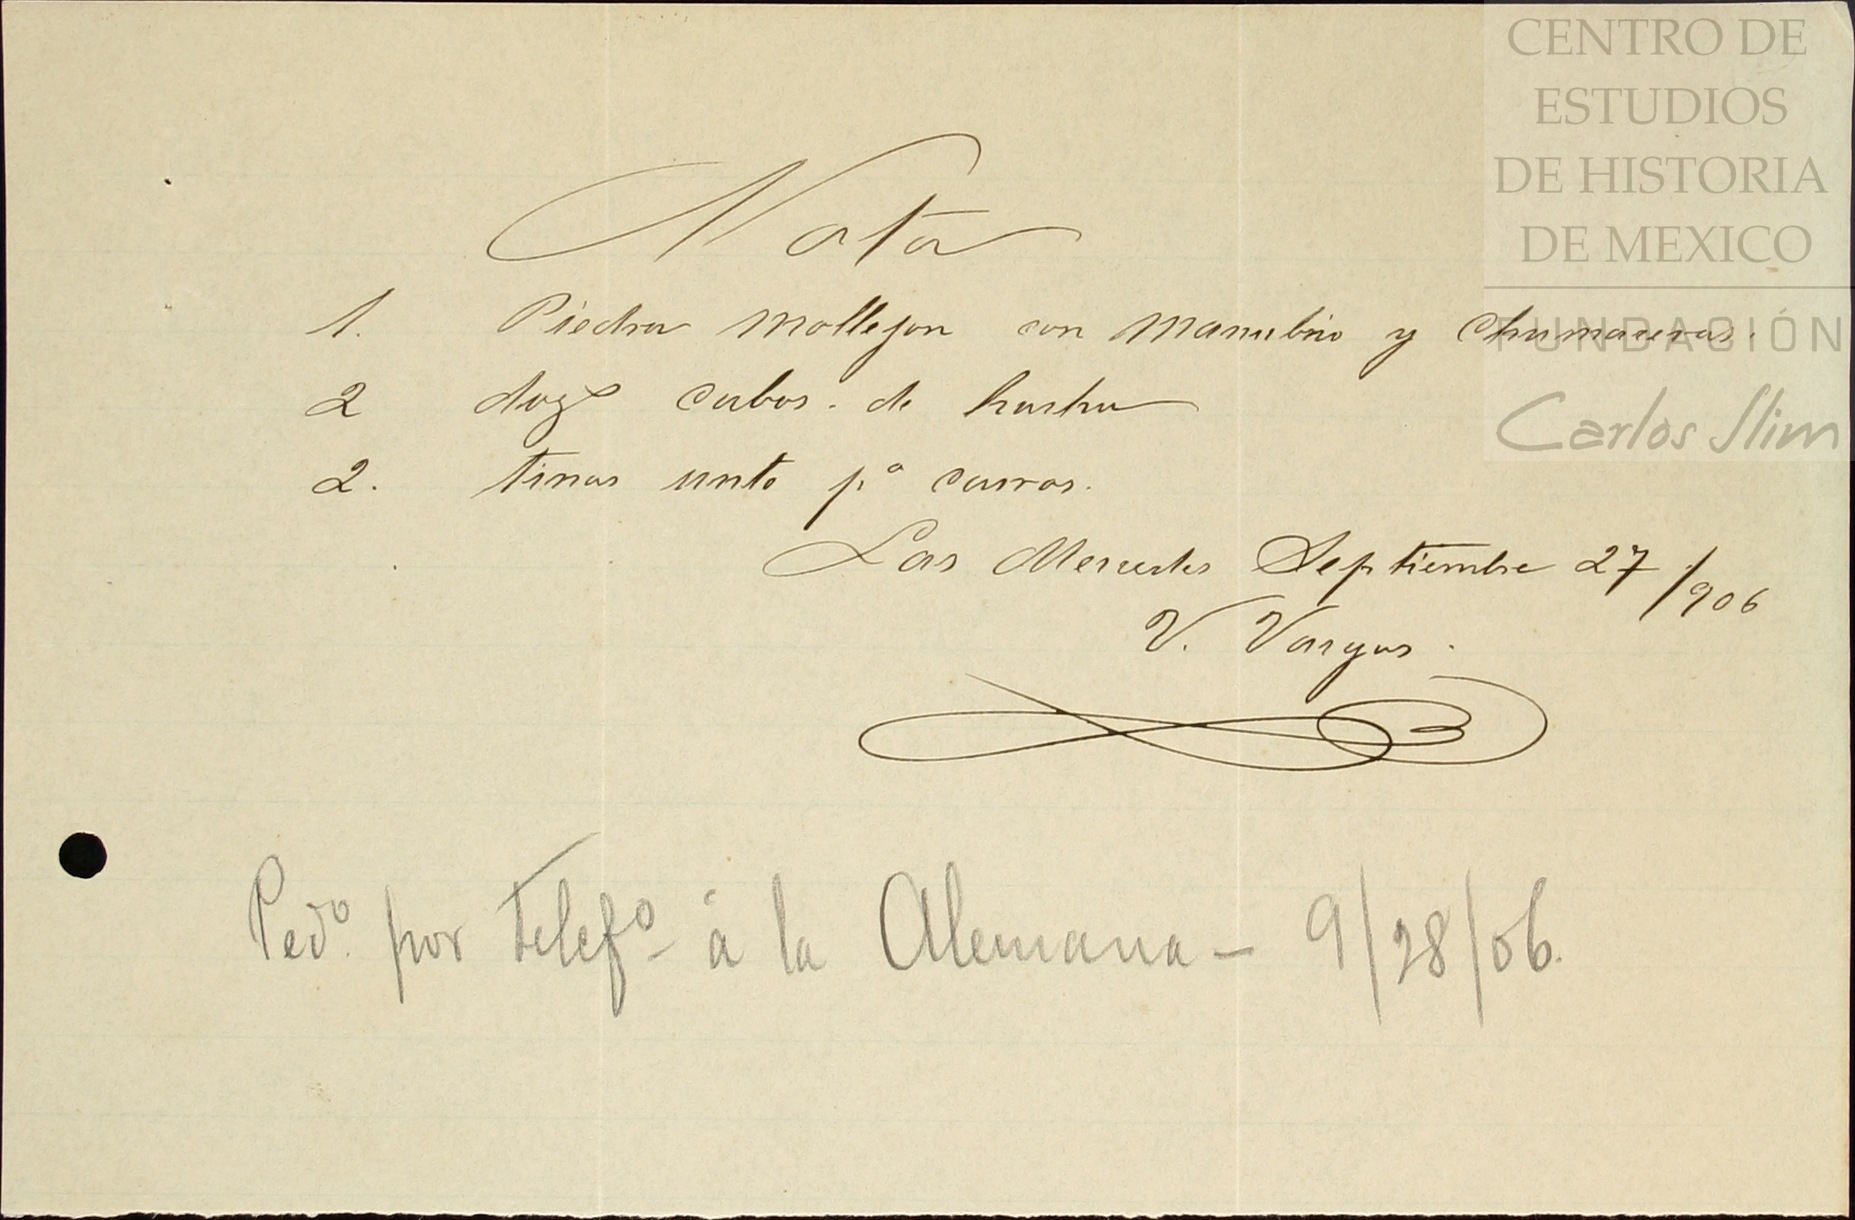 CENTRO DE
ESTUDIOS
DE HISTORIA
DE MEXICO
FUNDACIÓN
Carlos Slim
Nota
1. Piedra mollejon con manubrio y chumaceras.
2 dozs cabos de hacha
2. tinas unto pa carros.
Las Mercedes Septiembre 27/906
V. Vargas.
Pedo. por Telefo á la Alemana - 9/28/06.